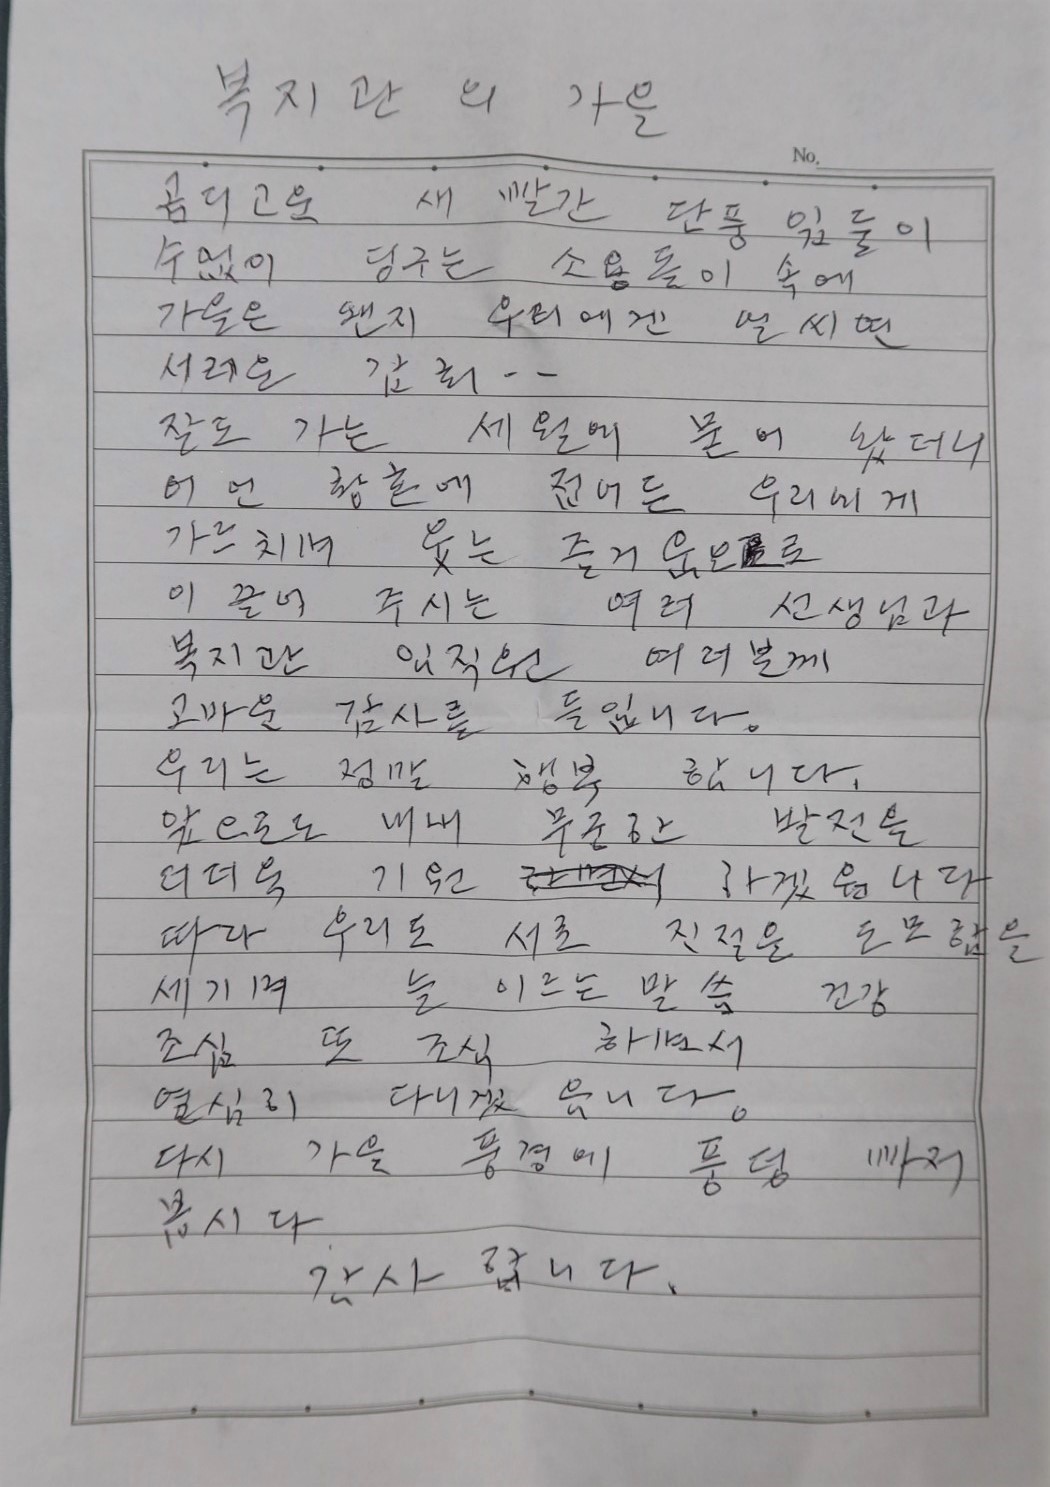 복지관 의 가을
No.
곱디고운 새 빨간 단풍 잎들이
수없이 딩구는 소용돌이 속에
가을은 왠지 우리에겐 얼씨면
서레온 감회--
잘도 가는 세월에 물어 왔더니
어언 황혼에 접어든 우리에게
가르치며 웃는 즐거움으로
이끌어 주시는 여러 선생님과
복지관 임직원 여러분께
고마운 감사를 들입니다.
우리는 정말 행복 합니다.
앞으로도 내내 무궁한 발전을
더더욱 기원 하겠읍니다
따라 우리도 서로 친절을 도모함을
세기며 늘 이르는 말씀 건강
조심 또 조심 하면서
열심히 다니겠읍니다.
다시 가을 풍경에 풍덩 빠저
봅시다
감사 합니다.